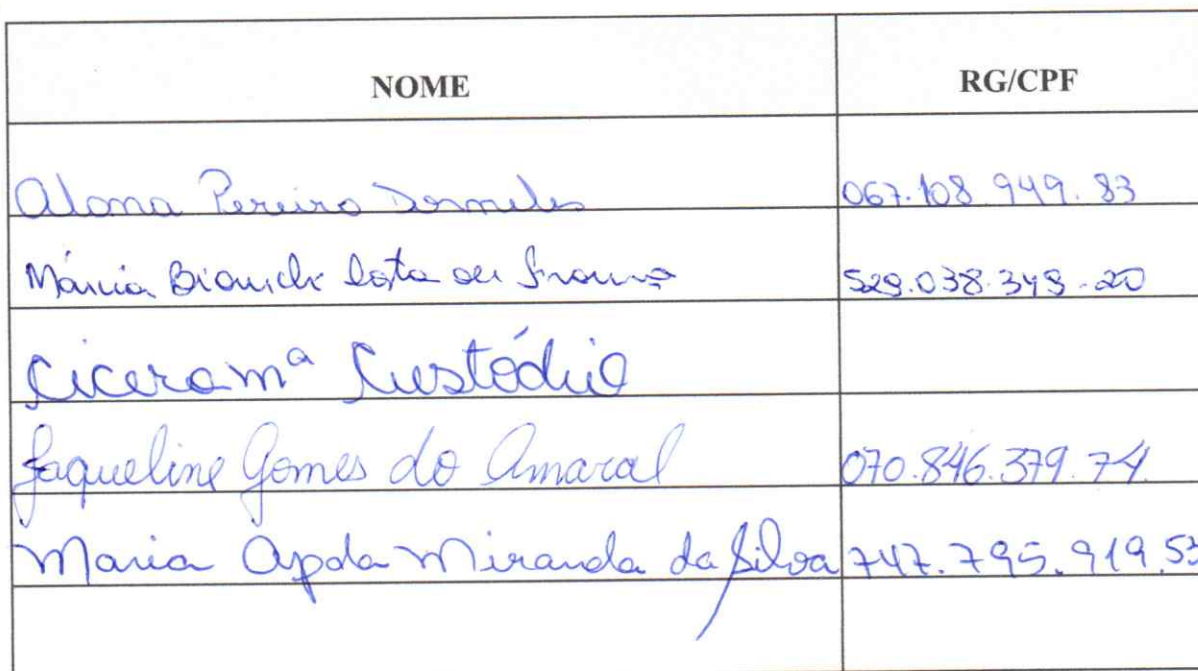 NOME RG/CPF
Alana Pereira Dorneles 067.108.949.83
Márcia Bianchi 529.038.349-20
Cicera mª Custódio
Jaqueline Gomes do Amaral 070.846.379.74
Maria Apda Miranda da Silva 747.795.919.53